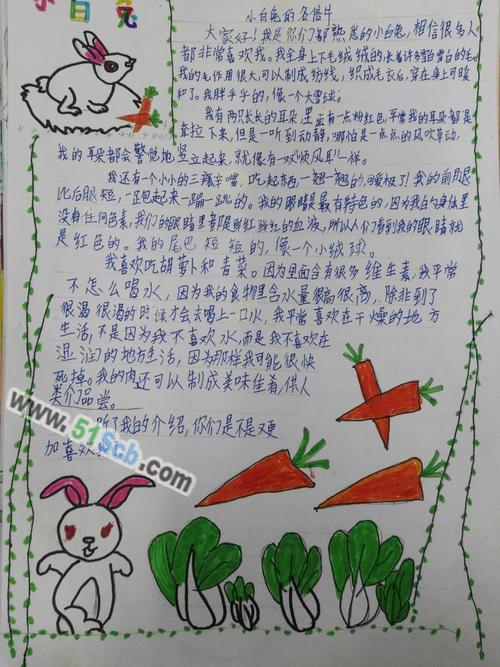 小白兔
小白兔的名信片
大家好！我是你们都熟悉的小白兔，相信很多人
都非常喜欢我。我全身上下毛绒绒的，长着许多雪白雪白的毛。
我的毛作用很大，可以制成纺线，织成毛衣后，穿在身上可暖
和了。我胖乎乎的，像一个大雪球。
我有两只长长的耳朵，里面有一点粉红色，平常我的耳朵都是
耷拉下来，但是一听到动静，哪怕是一点点的风吹草动，
我的耳朵都会警觉地竖立起来，就像有一双顺风耳一样。
我还有一个小小的三瓣嘴，吃起东西，一翘一翘的，可爱极了！我的前腿
比后腿短，一跑起来一蹦一跳的。我的眼睛是最有特色的，因为我的身体里
没有任何色素，我们的眼睛里都是鲜红鲜红的血液，所以人们看到我的眼睛就
是红色的。我的尾巴短短的，像一个小绒球。
我喜欢吃胡萝卜和青菜。因为里面含有很多维生素，我平常
不怎么喝水，因为我的食物里含水量很高很高，除非到了
很渴很渴的时候才会去喝上一口水，我平常喜欢在干燥的地方
生活，不是因为我不喜欢水，而是我不喜欢在
湿润的地方生活，因为那样我可能很快
死掉。我的肉还可以制成美味佳肴，供人
类们品尝。
听了我的介绍，你们是不是更
加喜欢我
www.51Scb.com